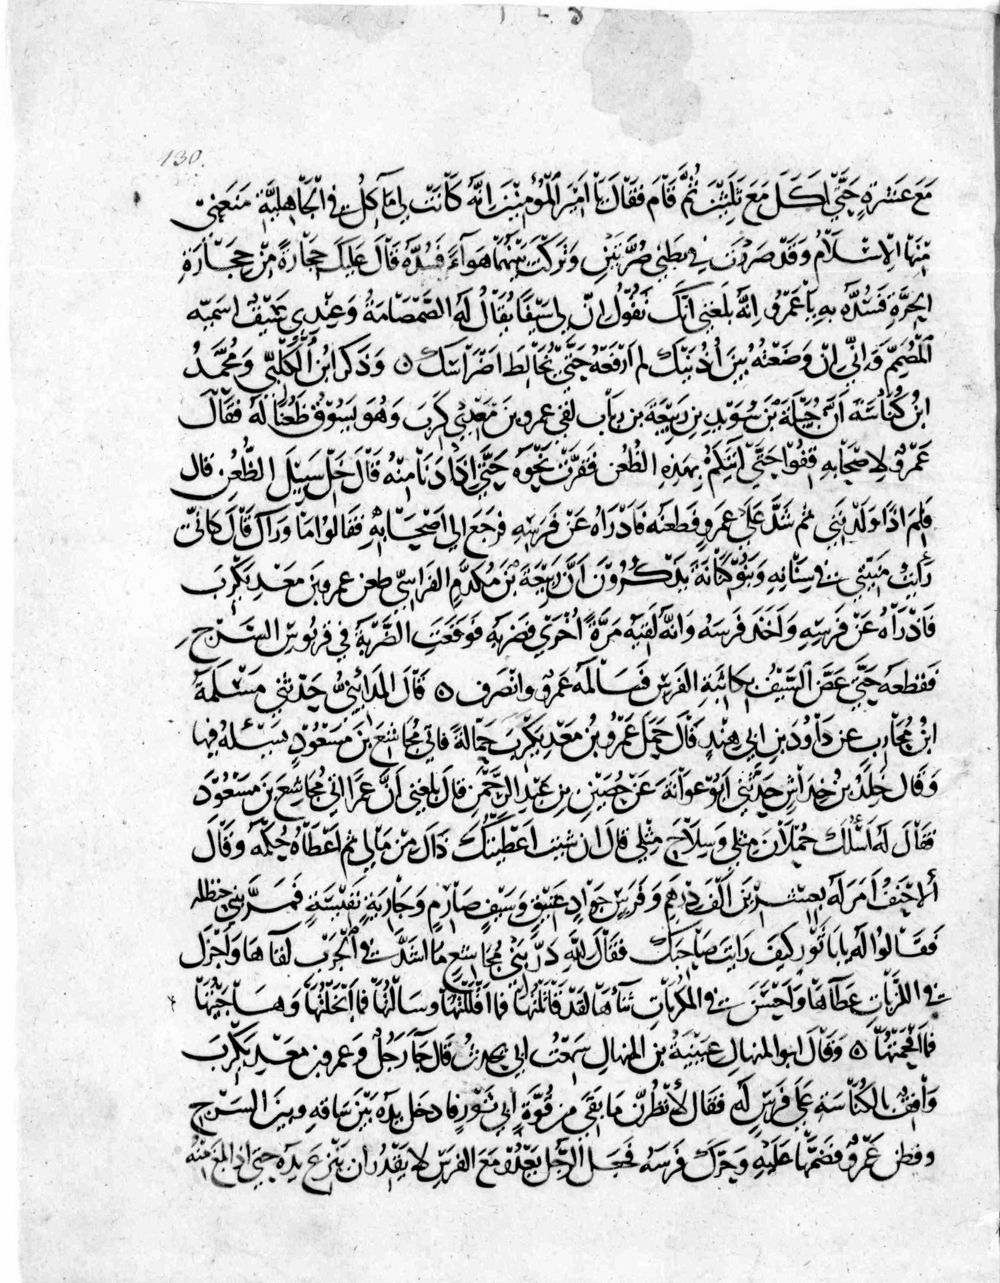 130.
مَعَ عَشرةٍ حَتَّى اَكَلَ مَعَ ثَلَثينَ ثُمَّ قَامَ فَقَالَ يا اَمير المُؤمنينَ انّه كَانَت لى مَآكِلُ فى الْجَاهِليَّة مَنَعَنى
مِنْهَا الاسْلَامُ وَقَد صَررْتُ فى بَطنى صُرَّتَيْنِ وَتَركتُ بَيْنَهُمَا هَوَآءً فَسُدَّه قَالَ عَلَيْكَ حِجَارةً مِنْ حِجَارَةِ
الحَرَّةِ فَسُدَّه بهِ يا عَمْرو انَّه بَلَغَنى انّكَ تَقُوْلُ انّ لى سَيْفًا يُقَالُ لَه الصَّمْصَامَةُ وَعِنْدِى سَيْفٌ اسَمّيه
المُصَمِّمَ وَانّى انْ وَضَعْتُهُ بيْنَ اُذُنَيْكَ لم اَرْفَعْهُ حَتَّى يُخَالِطَ اَضْرَاسَكَ ٥ وَذَكَرَ ابْنُ الْكَلْبِىّ وَمُحَمَّدُ
ابنُ كُنَاسَةَ اَنّ جُبَيْلَةَ بْنَ سُوَيْدِ بنِ رَبيعَةَ بن رباب لقى عمرو بنَ مَعْدِى كَرِبَ وَهُوَ يَسُوْقُ ظُعُنًا لَهُ فَقَالَ
عَمْرٌو لاصْحَابِهِ قِفُوْا حَتَّى اٰتِيَكُمْ بِهَذِهِ الظُّعُنِ فَقرَّبَ نَحْوَهُ حَتَّى اِذَا دَنَا مِنْهُ قَالَ خَلّ سَبِيْلَ الظُّعُنِ قال
فَلِمَ اذًا وَلَدْتَنِى ثم شَدَّ عَلَى عمرو فطعنه فَاَدْرَاهُ عَنْ فَرَسِهِ فرَجَعَ الى اَصْحَابِهِ فقالُوا مَا وَرَآكَ قَالَ كَاَنّى
رَاَيتُ مَنِيَّتى فى سِنَانِهِ وَبَنُوْ كِنَانَةَ يَذْكُرُوْنَ اَنَّ رَبيْعَةَ بْنَ مُكَدَّمٍ الفِرَاسِىّ طعن عمرو بنَ مَعْدِيكَرِبَ
فَاَدْرَاَهُ عَنْ فَرَسِهِ وَاَخَذَ فَرَسَهُ وَانّهُ لَقِيَه مَرَّةً اُخْرَى فضربَهُ فَوَقَعَتِ الضَّرْبَةُ فى قربُوس السَّرْجِ
فَقَطَعَهُ حَتَّى عَضَّ السَّيْفُ بكاثبَةِ الفَرَسِ فَسَالَمَهُ عَمْرٌو وانْصَرَفَ ٥ قَالَ المَدَائِنِىُّ حَدَّثَنى مَسْلَمَةُ
ابنُ مُحَارِبٍ عن دَاوُدَ بنِ ابى هِنْدٍ قَالَ حَمَلَ عَمْرُو بْنُ مَعْدِيكَرِبَ حَمَالَةً فاتى مُجَاشِعَ بنَ مَسْعُوْدٍ يَسْئَلُهُ فيها
وَقَالَ خَلَدُ بْنُ خِدَاشٍ حَدَّثَنى اَبُوْ عَوَانَةَ عَنْ حُصَيْنِ بنِ عَبْدِ الرَّحْمٰنِ قَالَ بَلَغَنى اَنَّ عَمْرًا اتى مُجَاشِعَ بنَ مَسْعُوْدٍ
فقَالَ لَهُ اَسْئَلُكَ حُمْلَانَ مِثْلى وَسِلَاحَ مِثْلى قال انْ شئتَ اَعْطَيْتُكَ ذَاكَ مِنْ مَالِى ثم اَعْطَاهُ حُكْمَهُ وَقَالَ
الاَحْنَفُ اَمَرَ لَهُ بِعِشْرِيْنَ اَلْفَ دِرْهَمٍ وَفَرَسٍ جَوَادٍ عَتِيْقٍ وَسَيْفٍ صَارِمٍ وَجَارِيَةٍ نَفِيْسَةٍ فَمَرَّ ببنى حنظلة
فَقَالُوا لَه يَا بَا ثَوْرٍ كَيفَ رَاَيتَ صَاحِبَكَ فَقَالَ لِلّهِ دَرُّ بَنِى مُجَاشِعٍ مَا اَشَدَّ فى الْحَرْبِ لِقَآءَهَا وَاَجْزَلَ
فى اللَّزْبَاتِ عَطَآءَهَا وَاَحْسَنَ فى المَكْرُمَاتِ ثنَآءَهَا لقَدْ قَاتَلْتُهَا فما اَفْلَلْتُهَا وَسَالْتُهَا فما اَبْخَلْتُهَا وَهَاجَيْتُهَا
فمَا اَفْحَمْتُهَا ٥ وَقَالَ ابو المنهالِ عُيَيْنَةُ بن المنهالِ سَمِعْتُ ابى يحدثُ قَالَ جَآءَ رَجُلٌ وَعمرو بن مَعْدِيكَرِبَ
وَاقِفٌ بالكُنَاسَةِ عَلَى فَرَسٍ لَهُ فقَالَ لَاَنْظُرَنَّ مَا بَقِىَ مِنْ قُوَّةِ اَبى ثَوْرٍ فادخل يدَه بَيْنَ سَاقِهِ وبيْنَ السَرْجِ
وفَطِنَ عَمْرٌو فَضَمَّهَا عَلَيْهِ وَحَرَّكَ فَرَسَهُ فَجَعَلَ الرَّجُلُ يَعْدُوْ مَعَ الفَرَسِ لا يَقْدِرُ ان يَنْزِعَ يدَه حَتَّى اذا بَلَغَ مِنْهُ